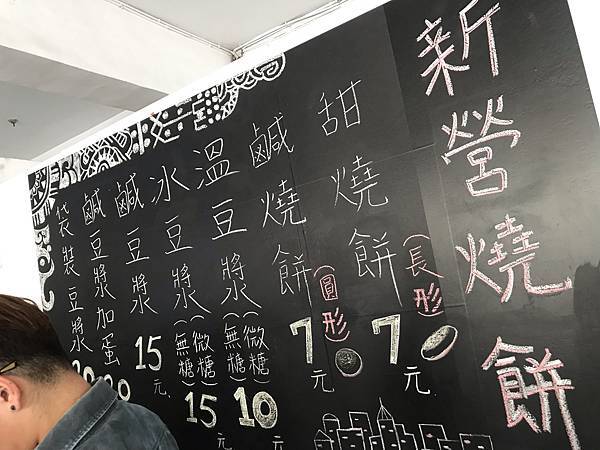 新營燒餅
甜燒餅(長形)7元
鹹燒餅(圓形)7元
溫豆漿(微糖)(無糖)10元
冰豆漿(微糖)(無糖)15元
鹹豆漿15元
鹹豆漿加蛋20
袋裝豆漿